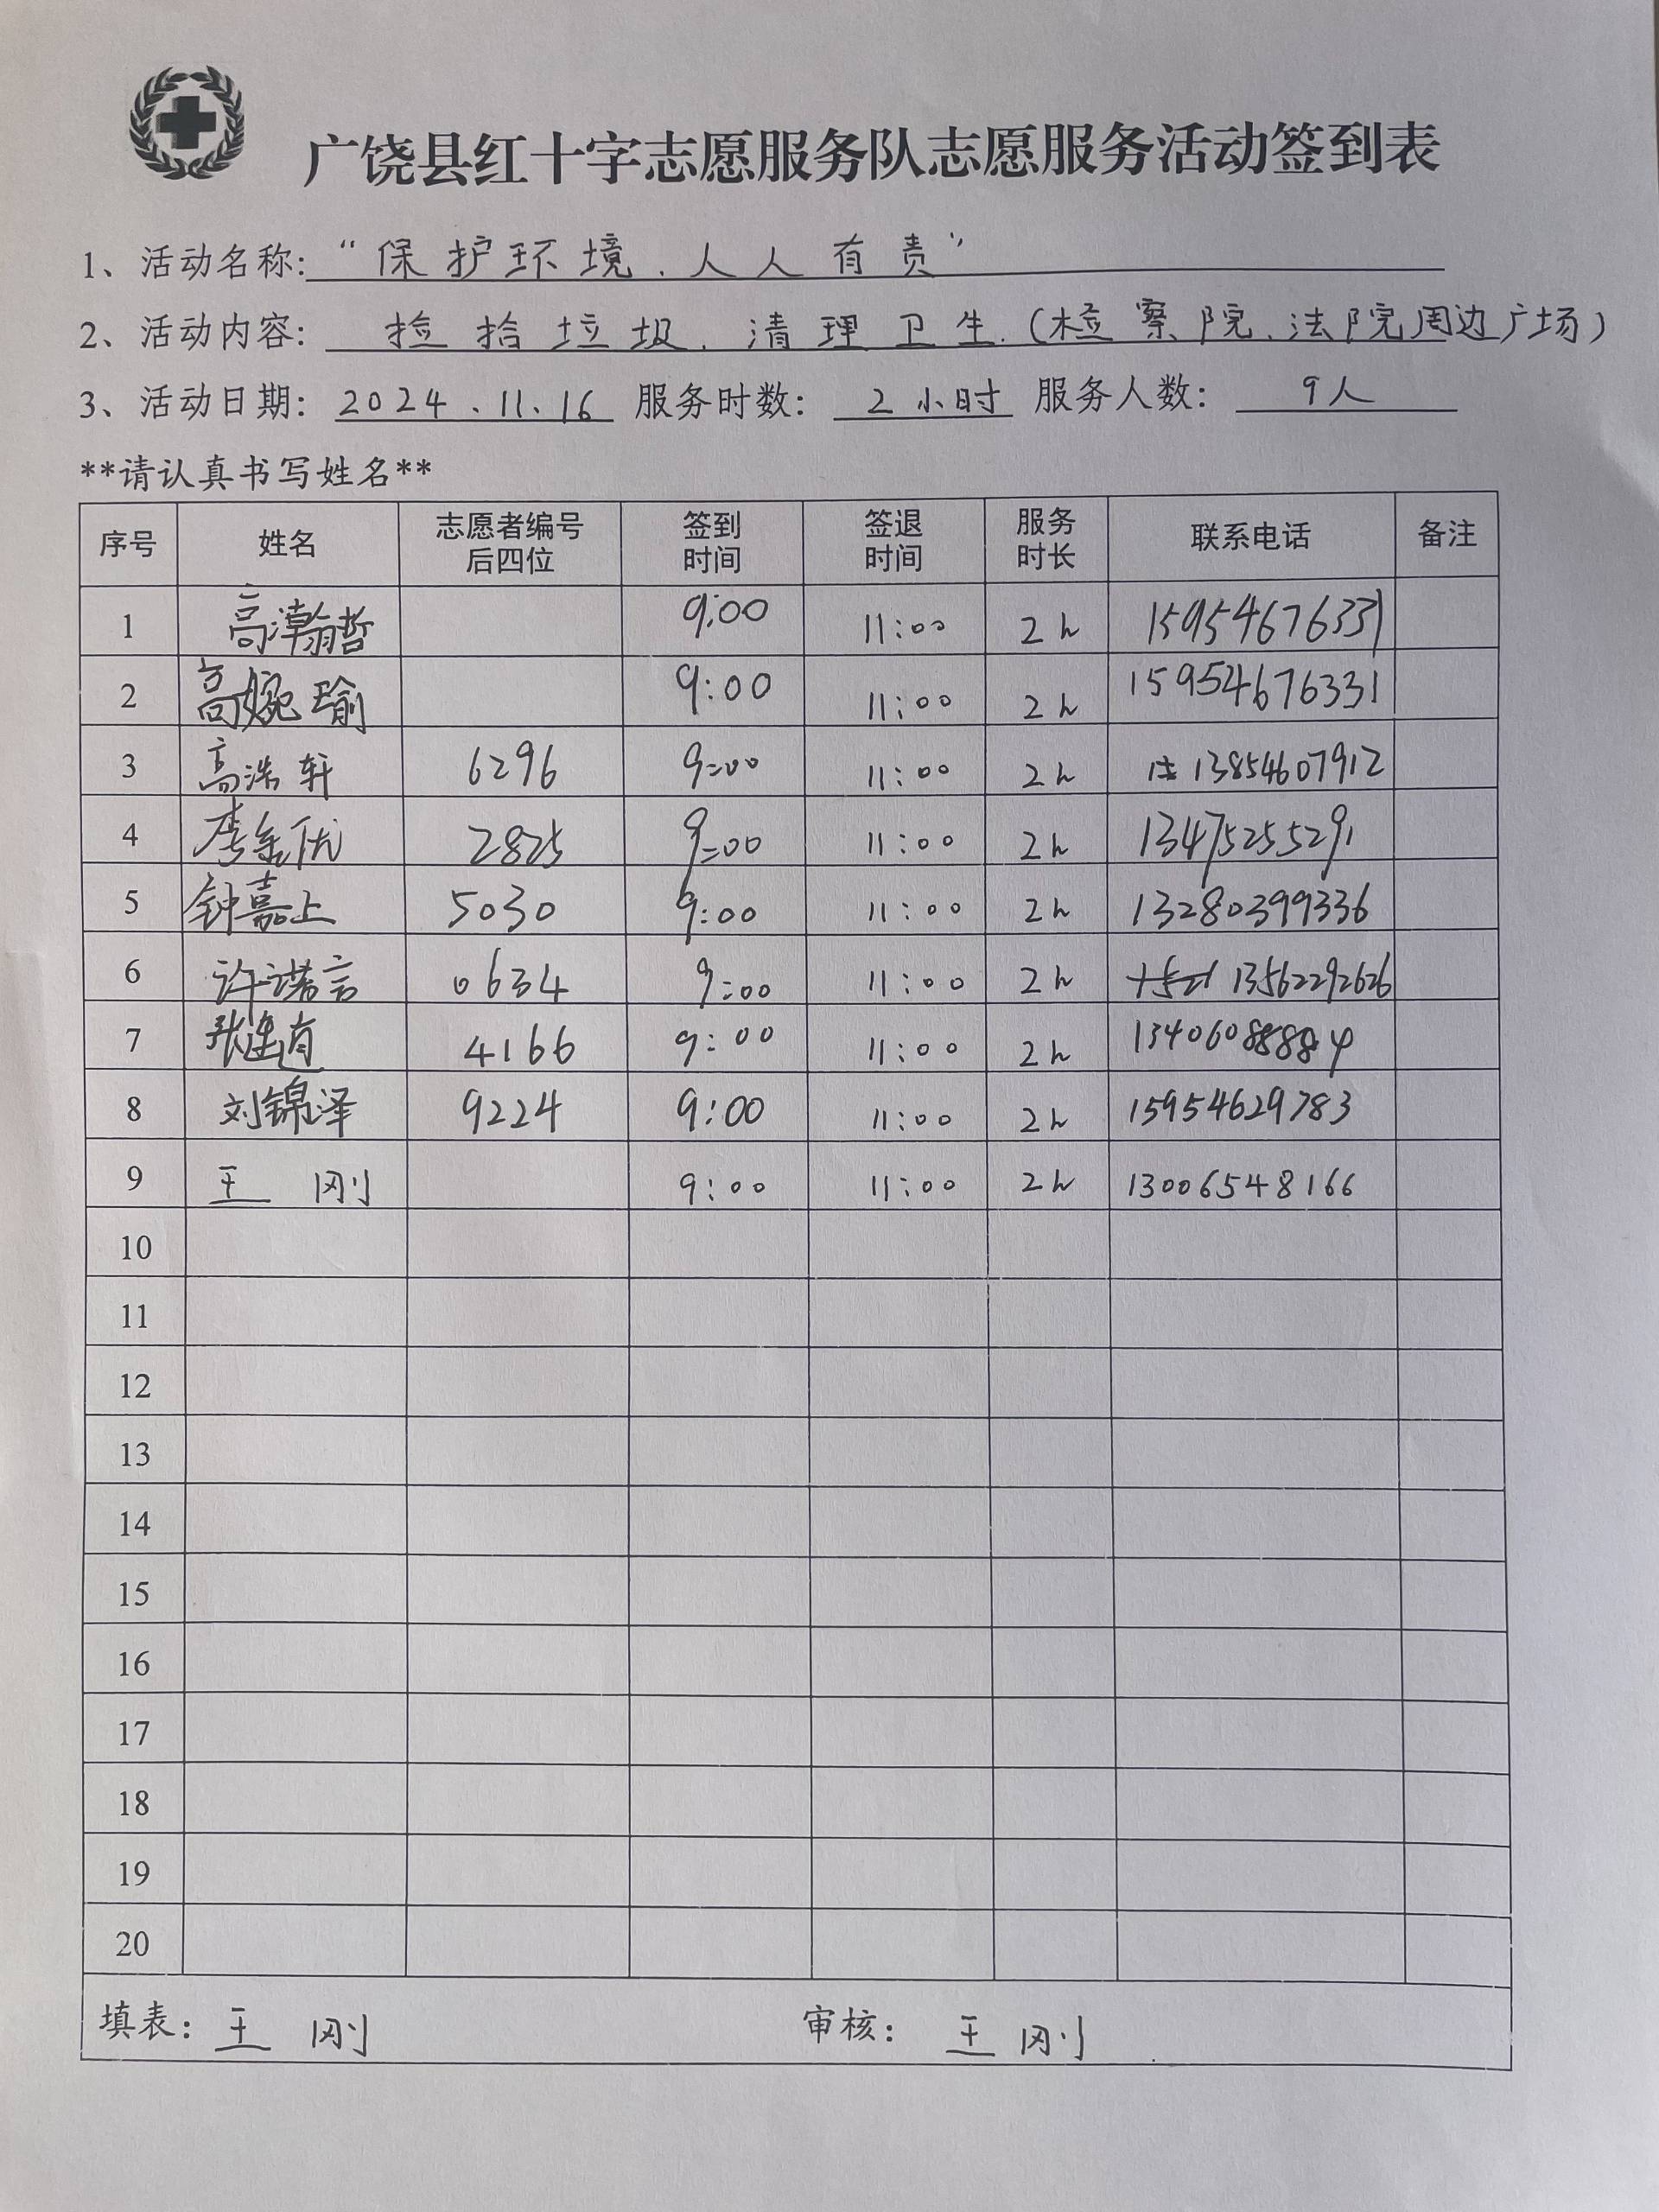 广饶县红十字志愿服务队志愿服务活动签到表
1、活动名称: “保护环境、人人有责”
2、活动内容: 捡拾垃圾、清理卫生.(检察院、法院周边广场)
3、活动日期: 2024.11.16 服务时数: 2小时 服务人数: 9人
**请认真书写姓名**
序号 姓名 志愿者编号后四位 签到时间 签退时间 服务时长 联系电话 备注
1 高瀚哲 9:00 11:00 2h 15954676331
2 高婉瑜 9:00 11:00 2h 15954676331
3 高浩轩 6296 9:00 11:00 2h 13854607912
4 李金优 2825 9:00 11:00 2h 13475255291
5 钟嘉上 5030 9:00 11:00 2h 13280399336
6 许诺言 0634 9:00 11:00 2h 13562292626
7 张 4166 9:00 11:00 2h
8 刘锦泽 9224 9:00 11:00 2h 15954629783
9 王刚 9:00 11:00 2h 13006548166
10
11
12
13
14
15
16
17
18
19
20
填表: 王刚 审核: 王刚